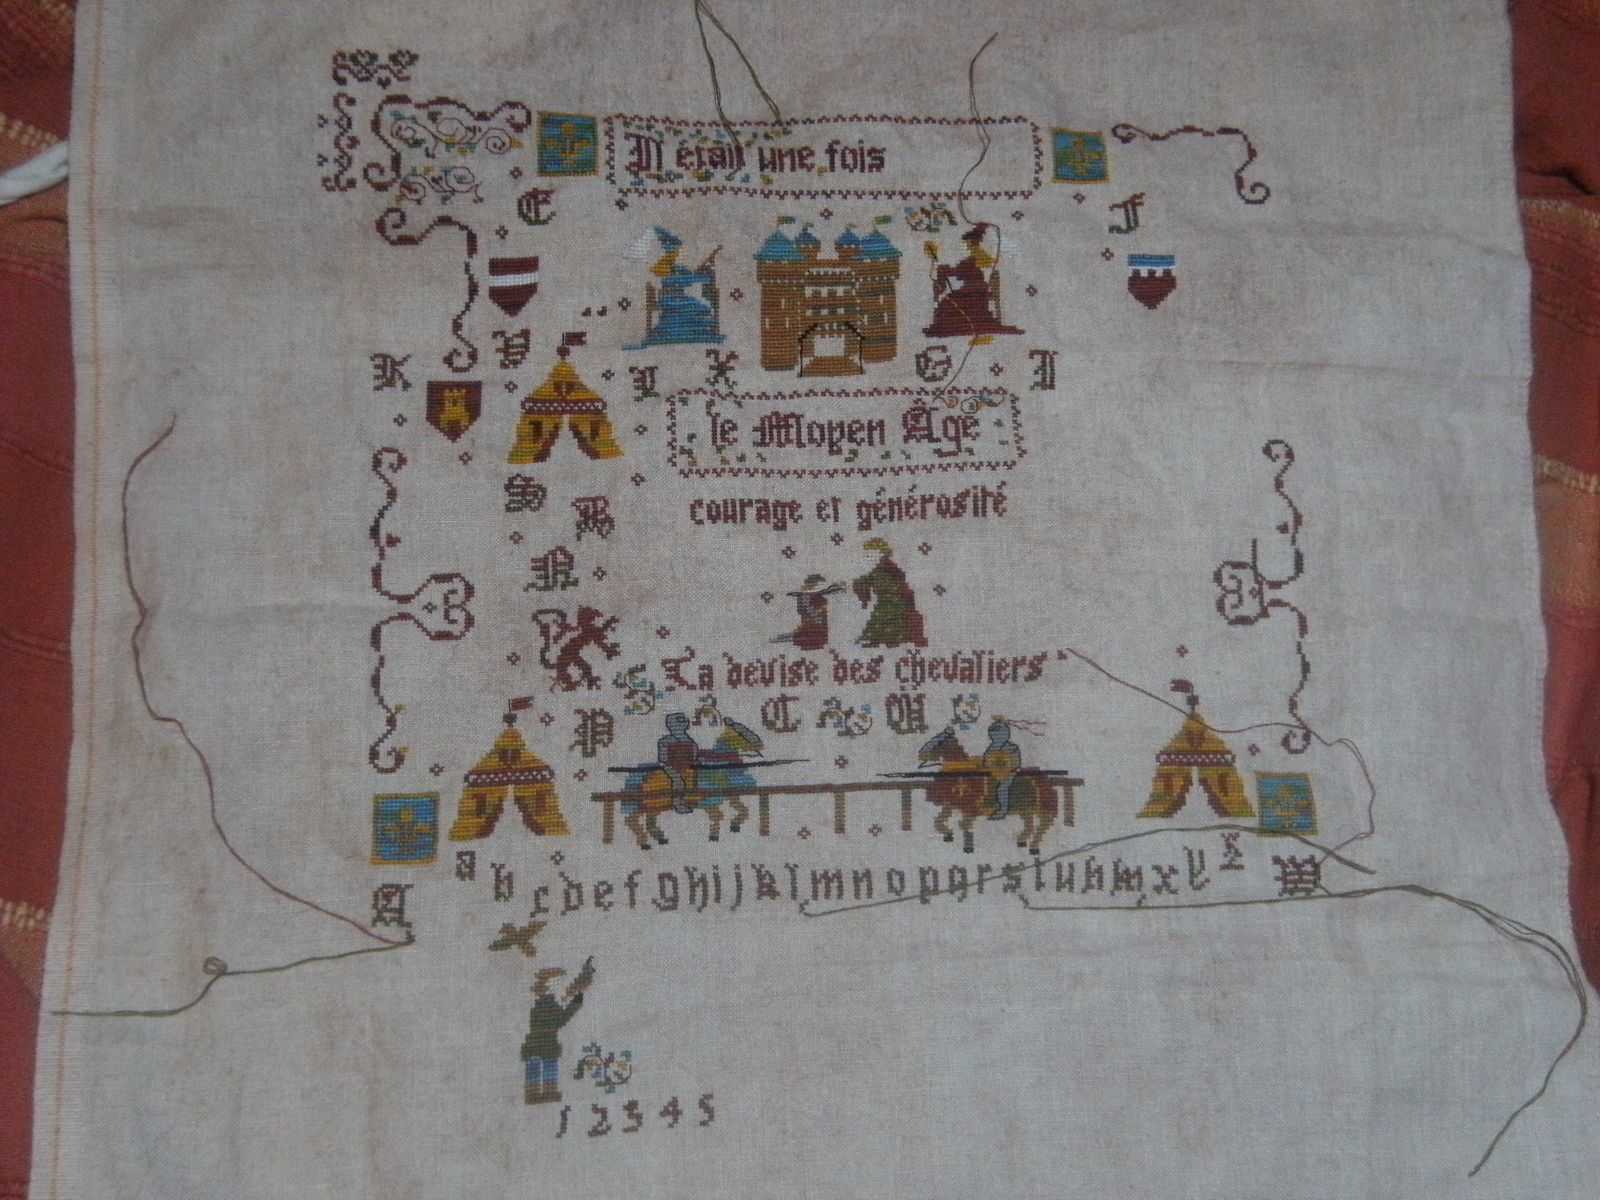 Il était une fois
E
F
K
V
Y
X
G
I
le Moyen Âge
S
B
courage et générosité
N
La devise des chevaliers
P
C
A
a b c d e f g h i j k l m n o p q r s t u v w x y z
1 2 3 4 5